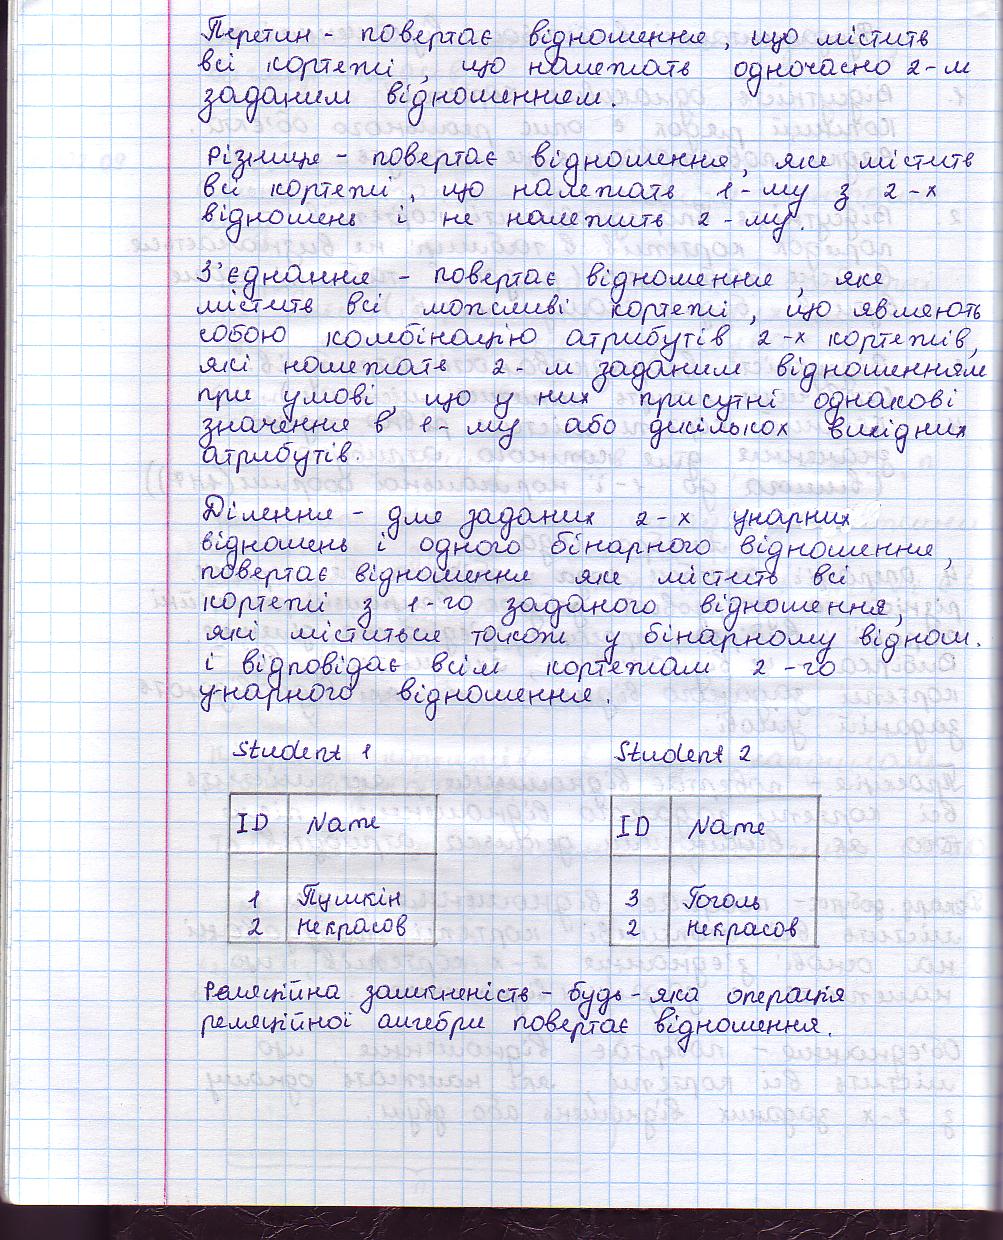 Перетин - повертає відношення, що містить
всі кортежі, що належать одночасно 2-м
заданим відношенням.
Різниця - повертає відношення, яке містить
всі кортежі, що належать 1-му з 2-х
відношень і не належить 2-му.
З'єднання - повертає відношення, яке
містить всі можливі кортежі, що являють
собою комбінацію атрибутів 2-х кортежів,
які належать 2-м заданим відношенням
при умові, що у них присутні однакові
значення в 1-му або дикількох вихідних
атрибутів.
Ділення - для заданих 2-х унарних
відношень і одного бінарного відношення,
повертає відношення яке містить всі
кортежі з 1-го заданого відношення,
які міститься також у бінарному віднош.
і відповідає всім кортежам 2-го
унарного відношення.
Student 1 Student 2
ID Name ID Name
1 Пушкін 3 Гоголь
2 Некрасов 2 Некрасов
Реляційна замкненість - будь-яка операція
реляційної алгебри повертає відношення.